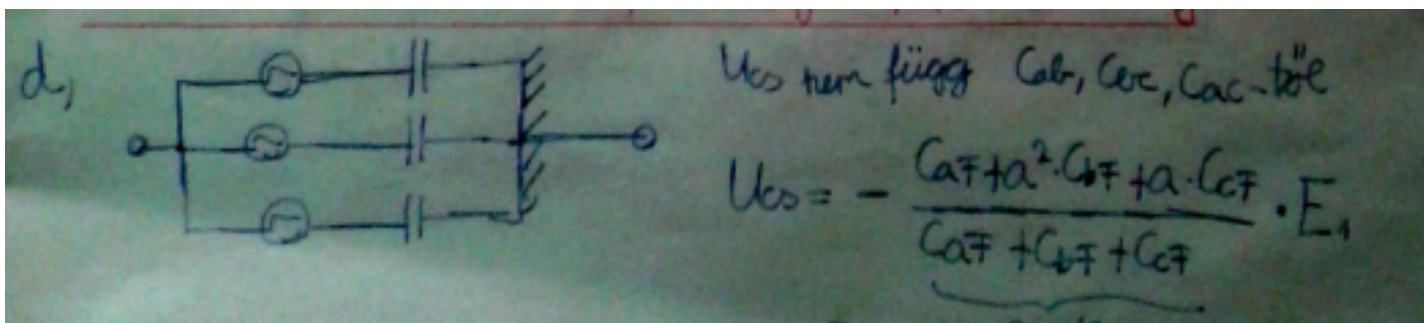 d,
Ucs nem függ Cab, Cbc, Cac-től
Ucs = - (CaF + a²·CbF + a·CcF) / (CaF + CbF + CcF) · E₁